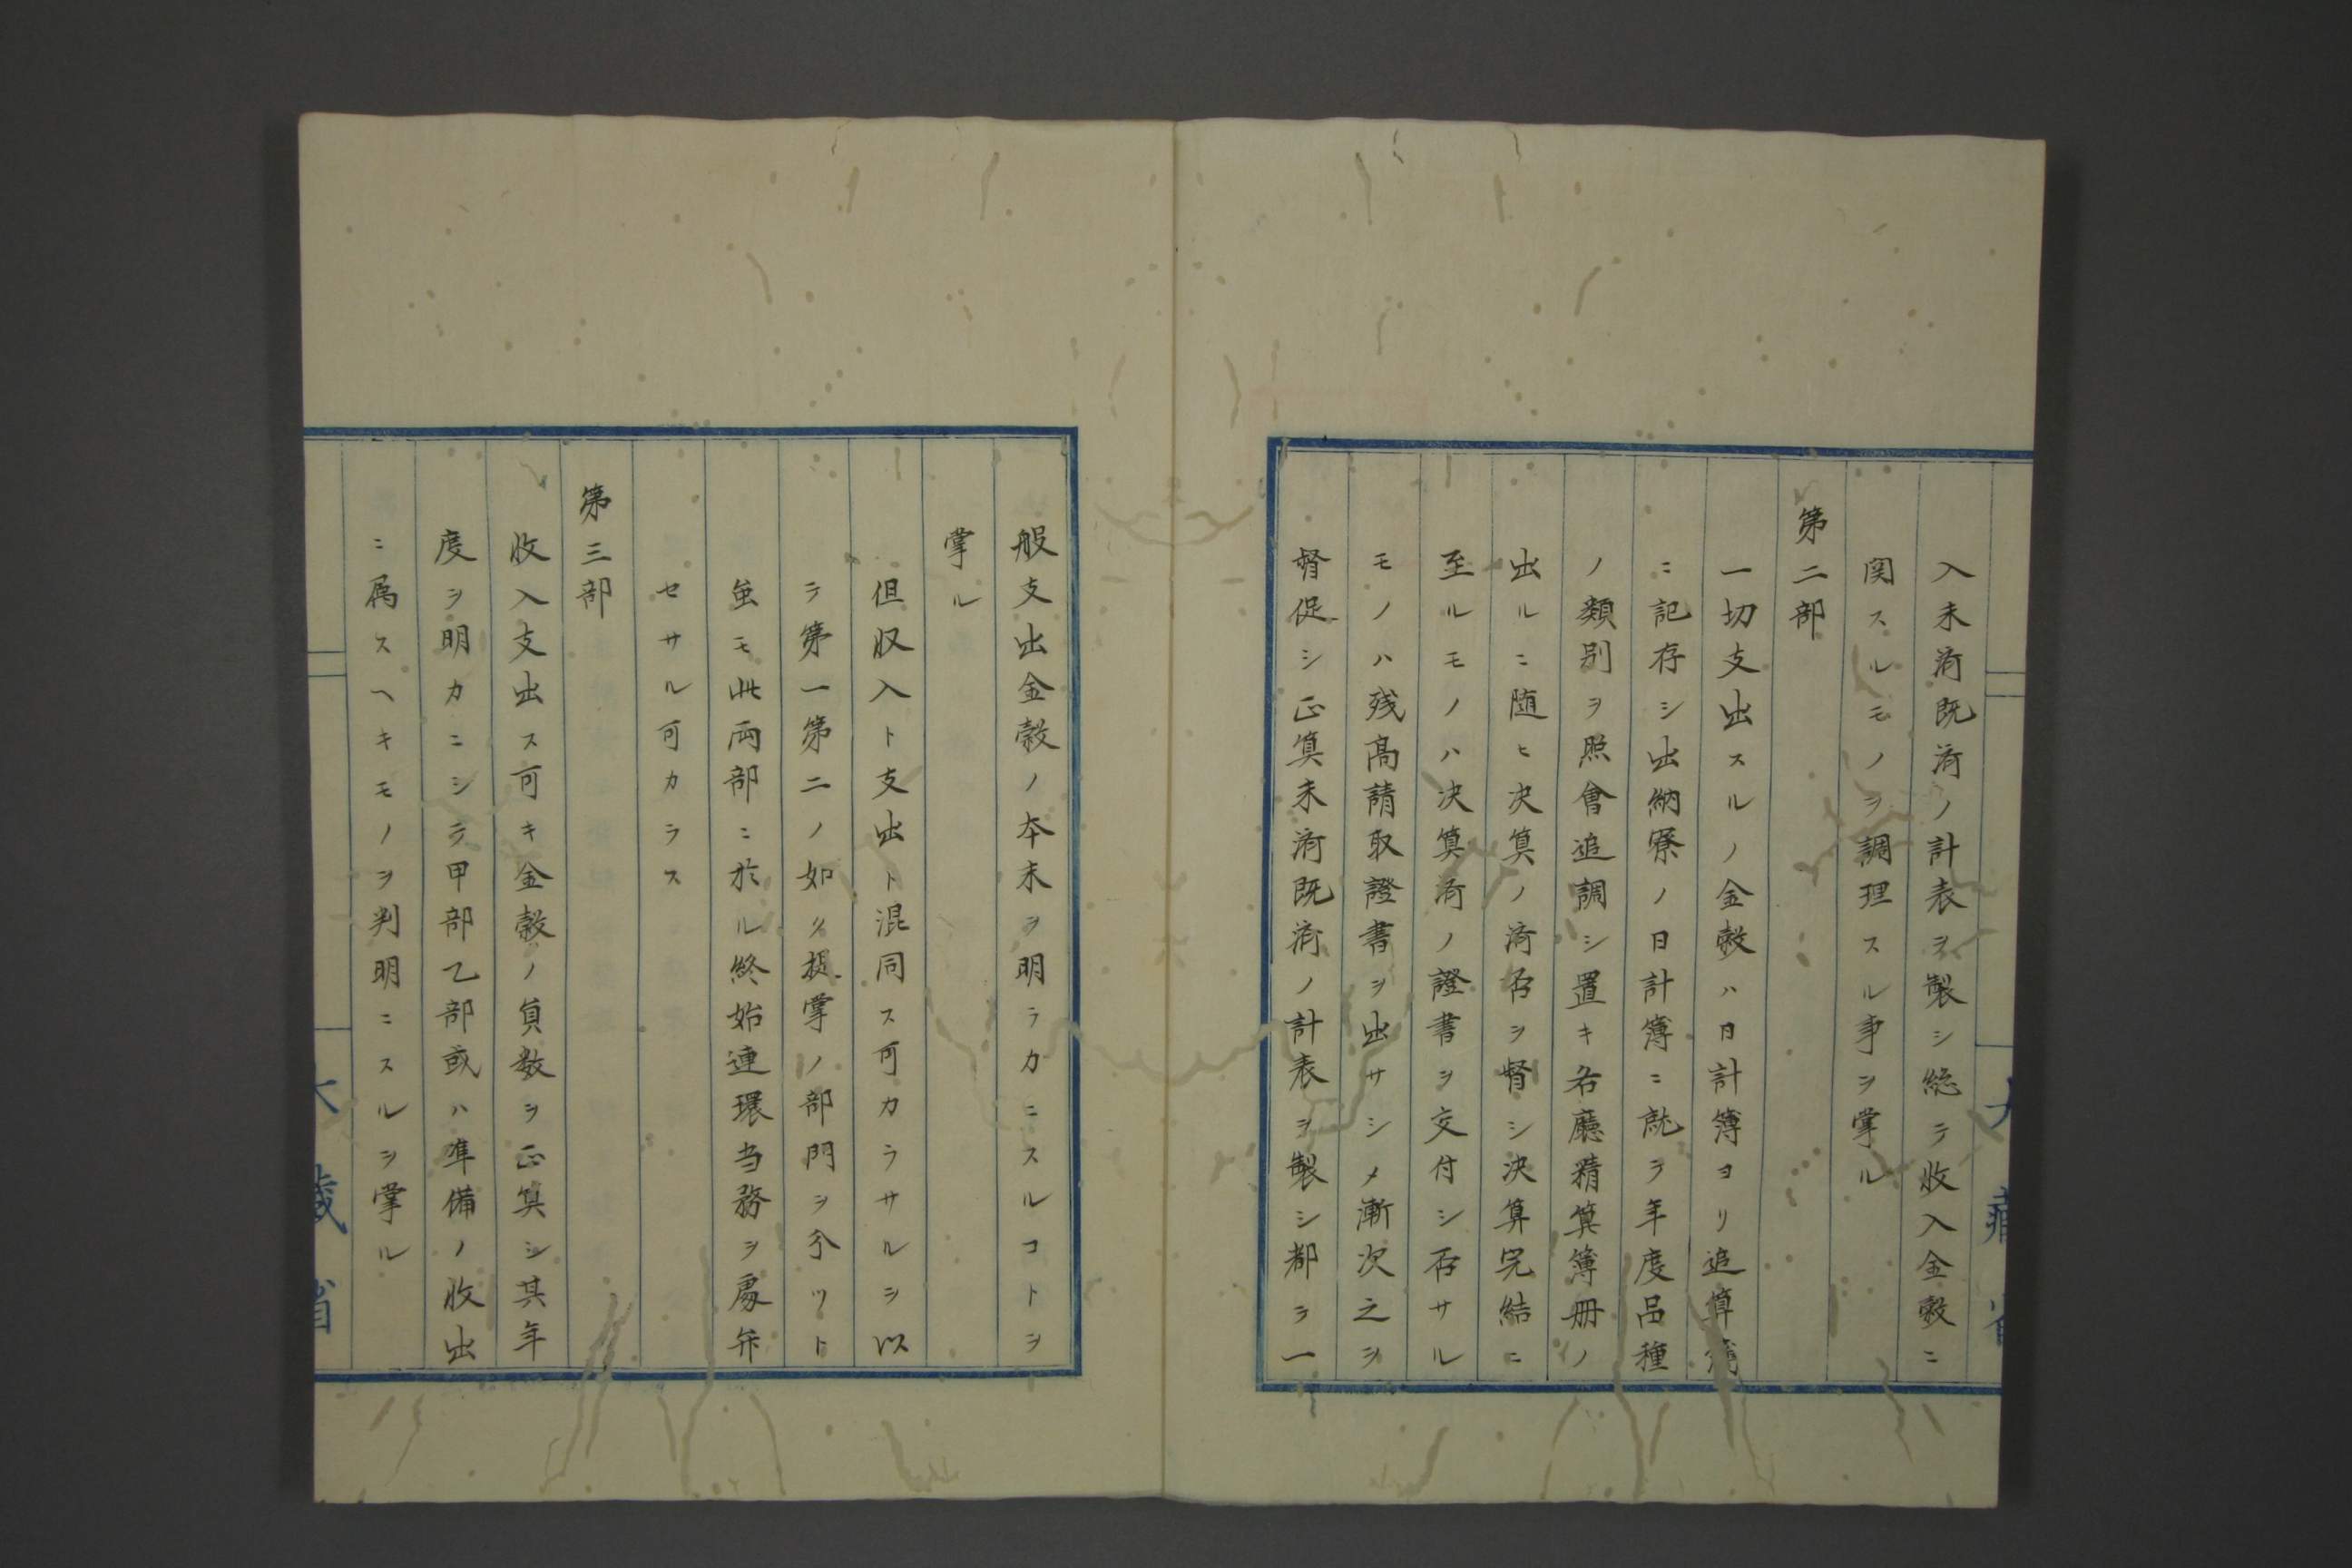 入未済既済ノ計表ヲ製シ総テ收入金穀ニ
関スルモノヲ調理スル事ヲ掌ル
第二部
一切支出スルノ金穀ハ日計簿ヨリ追算簿
ニ記存シ出納寮ノ日計簿ニ就テ年度品種
ノ類別ヲ照會追調シ置キ各廳精算簿冊ノ
出ルニ随ヒ决算ノ済否ヲ督シ决算完結ニ
至ルモノハ决算済ノ證書ヲ交付シ否サル
モノハ残高請取證書ヲ出サシメ漸次之ヲ
督促シ正算未済既済ノ計表ヲ製シ都テ一
般支出金穀ノ本末ヲ明ラカニスルコトヲ
掌ル
但収入ト支出ト混同ス可カラサルヲ以
テ第一第二ノ如ク提掌ノ部門ヲ分ツト
虽モ此両部ニ於ル終始連環当務ヲ處弁
セサル可カラス
第三部
收入支出ス可キ金穀ノ員数ヲ正算シ其年
度ヲ明カニシテ甲部乙部或ハ準備ノ收出
ニ属スヘキモノヲ判明ニスルヲ掌ル
大藏省